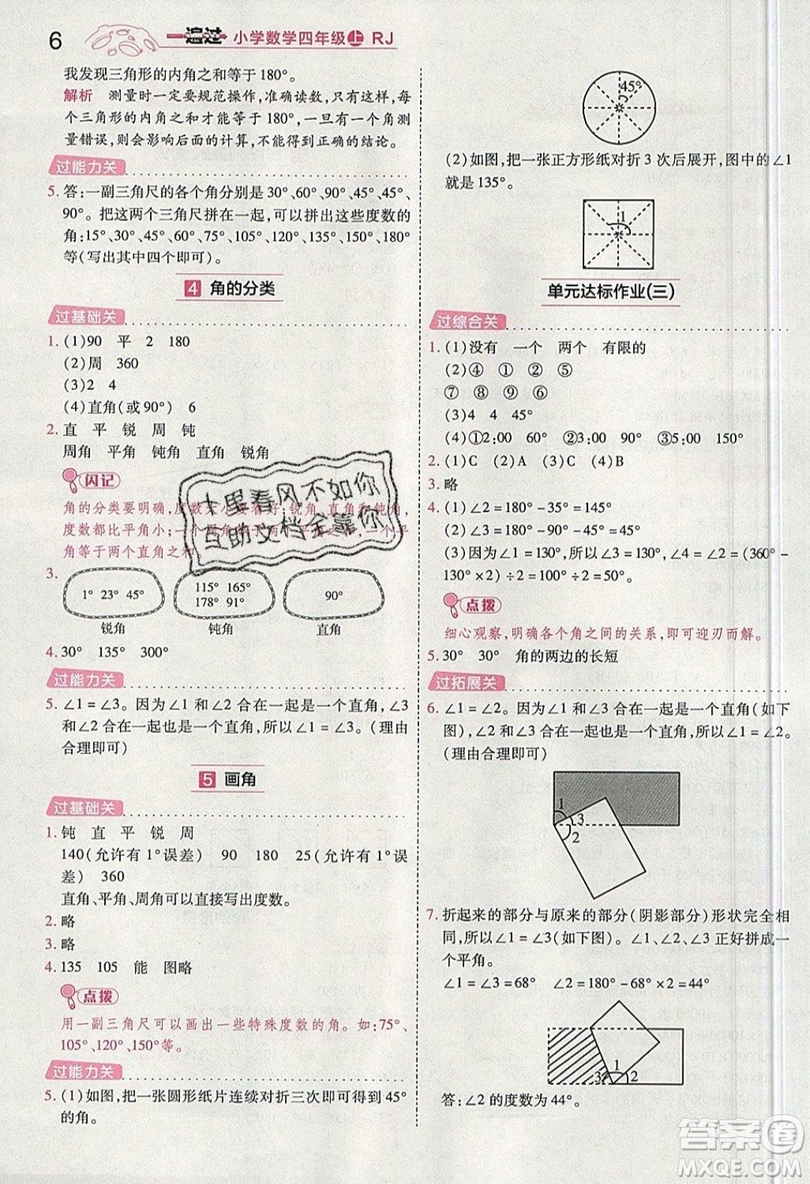 6
一遍过 小学数学四年级上 RJ
我发现三角形的内角之和等于180°。
解析 测量时一定要规范操作,准确读数,只有每
个三角形的三个内角的度数测量准确,最后求出
来的内角之和才能等于180°。一旦有一个角测
量错误,则会影响后面的计算,不能得到正确的结论。
过能力关
5. 答:一副三角尺的各个角分别是30°、60°、90°、45°、
90°。把这两个三角尺拼在一起,可以拼出这些度数的
角:15°、30°、45°、60°、75°、105°、135°、120°、180°
等(写出其中四个即可)。
4 角的分类
过基础关
1. (1)90 平 2 180
(2)周 360
(3)2 4
(4)直角(或90°) 6
2. 直 平 锐 周 钝
周角 平角 钝角 直角 锐角
闪记
角的分类要明确,度数大小要看好。锐角、
度数都比平角小;一个
角等于两个直角之和。
3.
1° 23° 45°
115° 165°
178° 91°
90°
锐角 钝角 直角
4. 30° 135° 300°
过能力关
5. ∠1=∠3。因为∠1和∠2合在一起是一个直角,∠3
和∠2合在一起也是一个直角,所以∠1=∠3。(理由
合理即可)
5 画角
过基础关
1. 钝 直 平 锐 周
140(允许有1°误差) 90 180 25(允许有1°误
差) 360
直角、平角、周角可以直接写出度数。
2. 略
3. 略
4. 135 105 能 图略
点拨
用一副三角尺可以画出一些特殊度数的角。如:75°、
105°、120°、135°、150°等。
过能力关
5. (1)如图,把一张圆形纸片连续对折三次即可得到45°
的角。
45°
(2)如图,把一张正方形纸对折3次后展开,图中的∠1
就是135°。
1
单元达标作业(三)
过综合关
1. (1)没有 一个 两个 有限的
(2)④ ① ② ⑤
⑦ ⑧ ⑨ ④
(3)4 4 45°
(4)①2:00 60° ②3:00 90° ③5:00 150°
2. (1)C (2)A (3)C (4)B
3. 略
4. (1)∠2=180°-35°=145°
(2)∠1=90°-45°=45°
(3)因为∠1=130°,所以∠3=∠2=(360°-
130°×2)÷2=100°÷2=50°。
点拨
细心观察,明确各个角之间的关系,即可迎刃而解。
5. 30° 30° 角的两边的长短
过拓展关
6. ∠1=∠2。因为∠1和∠3合在一起是一个直角(如下
图),∠2和∠3合在一起也是一个直角,所以∠1=∠2。
(理由合理即可)
1
3
2
7. 折起来的部分与原来的部分(阴影部分)形状完全相
同,所以∠1=∠3(如下图)。∠1、∠2、∠3正好拼成一
个平角。
∠1=∠3=68° ∠2=180°-68°×2=44°
3 1 2
答:∠2的度数为44°。
十里春风不如你
互助文档全靠你
答案圈
MXQE.COM